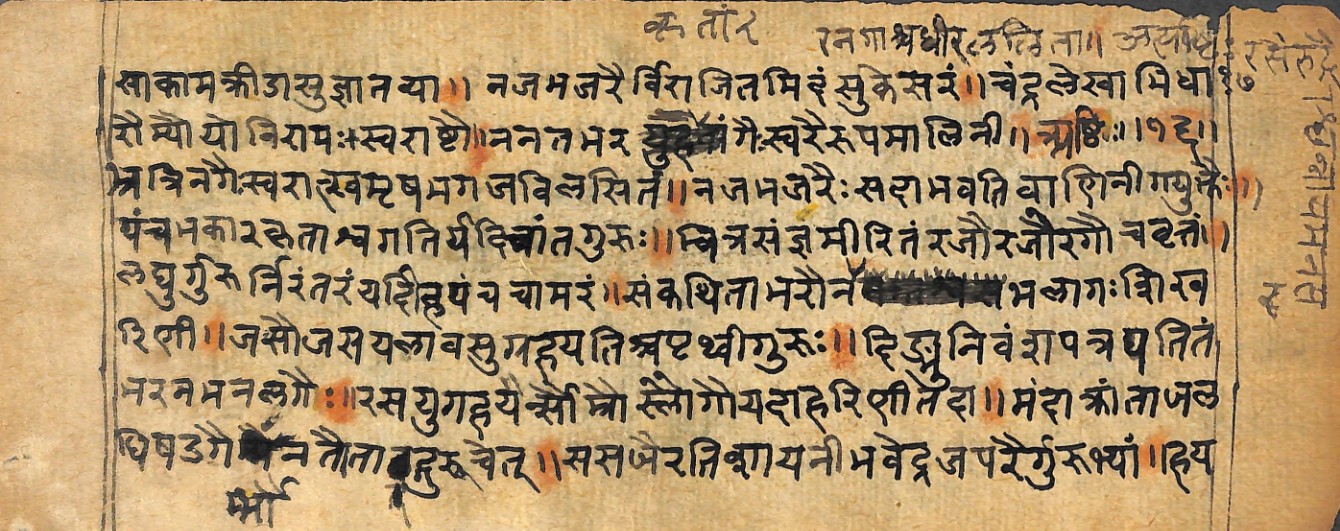 रनगाश्वधीरललिता॥
खाकामक्रीडासुज्ञातव्या॥ नजभजरैर्विराजितमिदंसुकेसरं॥ चंद्रलेखाभिधा
रौम्यौयोविरामः स्वराष्टौ॥ ननतभर गैःस्वरैरूपमालिनी॥ न्यष्टिः॥१६॥
भ्रत्रिनगैःस्वरात्खमृषभगजविलसितं॥ नजभजरैः सदाभवतिवाणिनीगयुतैः॥
पंचभकारकृताश्वगतिर्यदिचांतगुरूः॥ चित्रसंज्ञमीरितंरजौरजौरगौचवृतं॥
लघुर्गुरूर्निरंतरंयदिहिपंचचामरं॥ संकथिताभरौन भलागःशिख
रिणी॥ जसौजसयलावसुग्रहयतिश्चपृथ्वीगुरूः॥ दिङ्मुनिवंशपत्रपतितं
भरनभनलगैः॥ रसयुगहयैर्न्सौम्रौस्लौगौयदाहरिणीतदा॥ मंदाक्रांताजल
धिषडगै नतौताद्गुरूचेत्॥ ससजैरतिशायनीभवेद्भजपरैर्गुरूभ्यां॥ हय
र्म्भौ